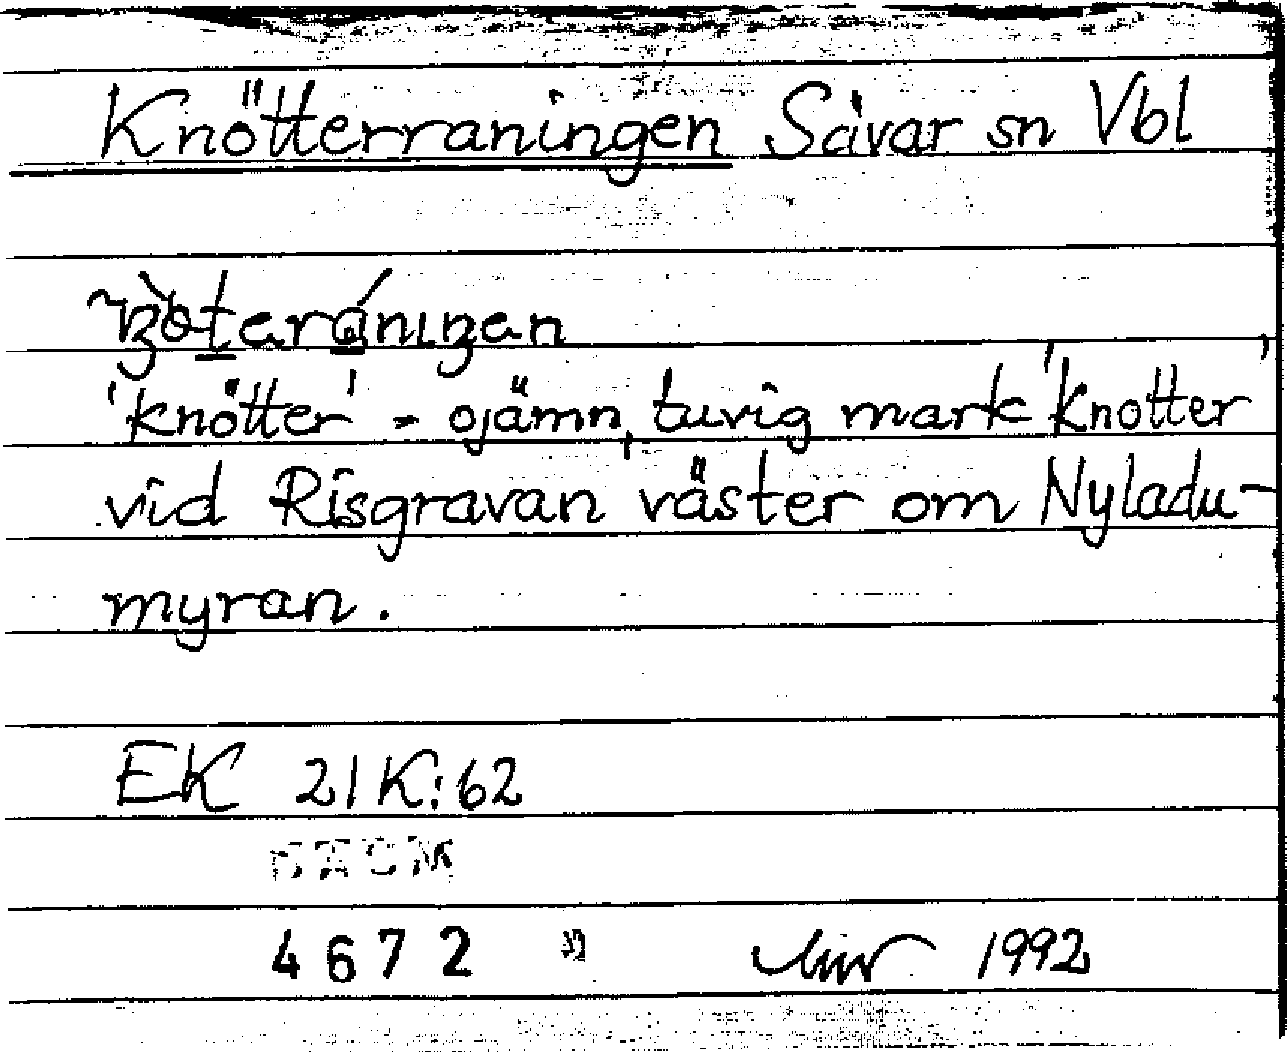 Knötterraningen Sävar sn Vbl
'knötter' = ojämn, tuvig mark 'Knotter'
vid Risgravan väster om Nyladu-
myran.
EK 21K:62
DAUM
4672
1992